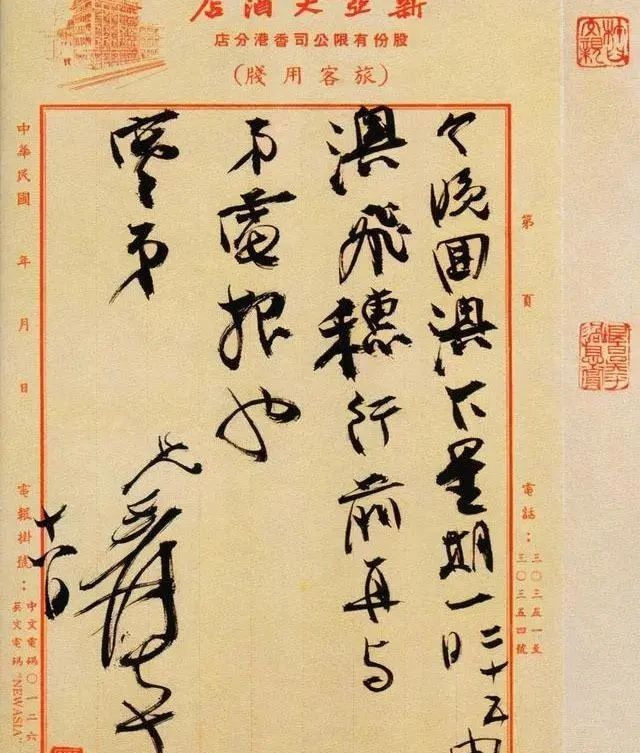 新亞大酒店
股份有限公司香港分店
(旅客用牋)
第 頁
電話:三〇三五一至
三〇三五四號
今晚回澳下星期一日二十五由
澳飛穗行前再与
弟電報也
弟
兄爰
中華民國 年 月 日
電報掛號:中文電碼〇一二六
英文電碼"NEWASIA"